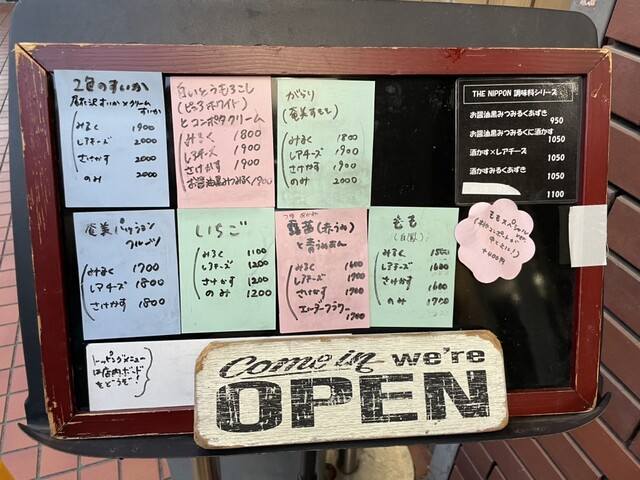 2色のすいか
尾花沢すいか×クリームすいか
みるく 1900
レアチーズ 2000
さけかす 2000
のみ 2000
白いとうもろこし
(ピュアホワイト)
とコンポタクリーム
みるく 1800
レアチーズ 1900
さけかす 1900
お醤油黒みつみるく 1900
がらり
(奄美すもも)
みるく 1800
レアチーズ 1900
さけかす 1900
のみ 2000
THE NIPPON 調味料シリーズ
お醤油黒みつみるくあずき
950
お醤油黒みつみるくに酒かす
1050
酒かす×レアチーズ
1050
酒かすみるくあずき
1050
1100
奄美パッション
フルーツ
みるく 1700
レアチーズ 1800
さけかす 1800
いちご
みるく 1100
レアチーズ 1200
さけかす 1200
のみ 1200
(赤うめ)
と青うめあん
みるく 1600
レアチーズ 1900
さけかす 1900
エルダーフラワー
1900
もも
(白鳳)
みるく 1500
レアチーズ 1600
さけかす 1600
のみ 1700
ももスペシャル
+400円
トッピングメニュー
は店内ボード
をどうぞ!
Come in we're
OPEN